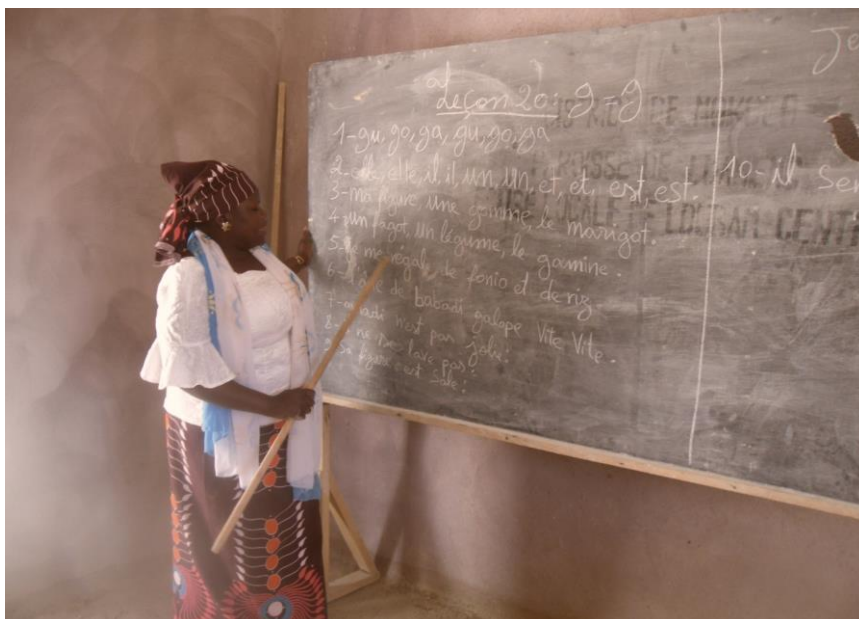 Leçon 20: g = g
1- gu, go, ga, gu, go, ga
2- elle, elle, il, il, un, un, et, et, est, est.
3- ma figure, une gomme, le marigot.
4- un fagot, un légume, le gamine.
5- je me régale de fonio et de riz
6- l'âne de babadi galope Vite Vite.
7- n'est pas jolie!
8- ne se lave pas!
9- sa figure est sale!
Je
10- il se